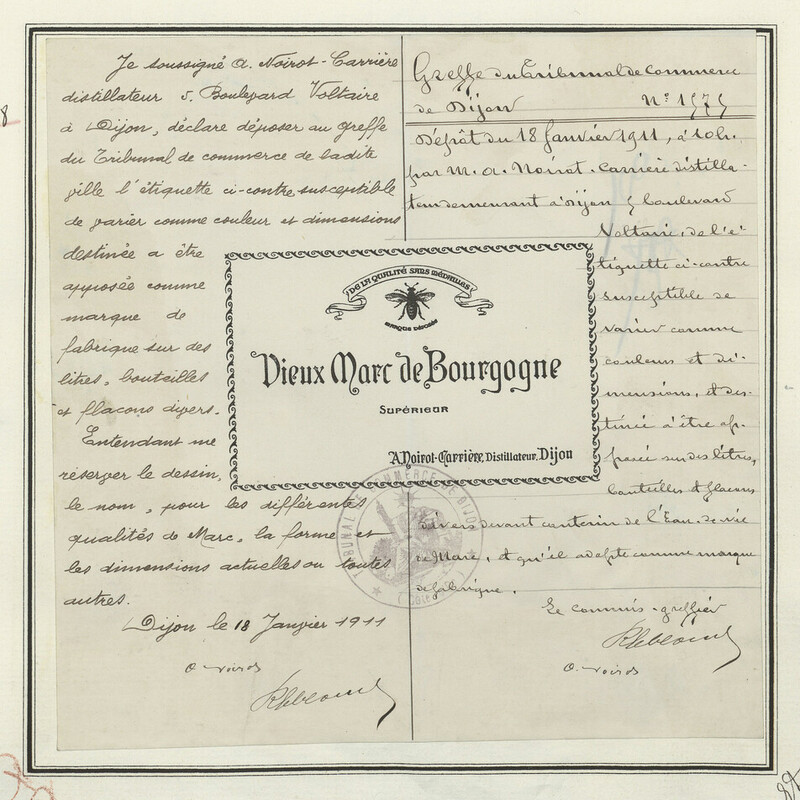 Je soussigné A. Noirot-Carrière
distillateur 5, Boulevard Voltaire
à Dijon, déclare déposer au greffe
du Tribunal de commerce de ladite
ville l'étiquette ci-contre susceptible
de varier comme couleur et dimensions
destinée a être
apposée comme
marque de
fabrique sur des
litres, bouteilles
et flacons divers.
Entendant me
réserver le dessin,
le nom, pour les différentes
qualités de Marc, la forme et
les dimensions actuelles ou toutes
autres.
Dijon le 18 Janvier 1911
A. Noirot
Greffe du Tribunal de Commerce
de Dijon N° 1575
Dépôt du 18 Janvier 1911, à 10h.
par M. A. Noirot-Carrière distilla-
teur demeurant à Dijon 5 boulevard
Voltaire, de l'é-
tiquette ci-contre
susceptible de
varier comme
couleurs et di-
mensions, et des-
tinée à être ap-
posée sur des litres,
bouteilles et flacons
divers devant contenir de l'Eau-de-vie
de Marc, et qu'il adopte comme marque
de fabrique.
Le commis-greffier
A. Noirot
DE LA QUALITÉ SANS MÉDAILLES
MARQUE DÉPOSÉE
Vieux Marc de Bourgogne
SUPÉRIEUR
A. Noirot-Carrière, Distillateur, Dijon
TRIBUNAL DE COMMERCE DE DIJON